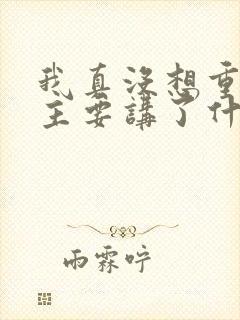 我真沒想重
主要講了什
雨霖咛